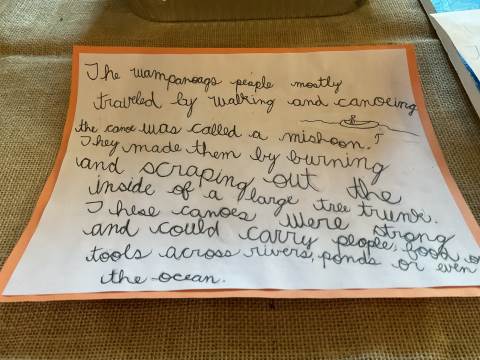 The wampanoags people mostly
traveled by walking and canoeing
the canoe was called a mishoon.
They made them by burning
and scraping out the
inside of a large tree trunk.
These canoes were strong
and could carry people, food or
tools across rivers, ponds or even
the ocean.